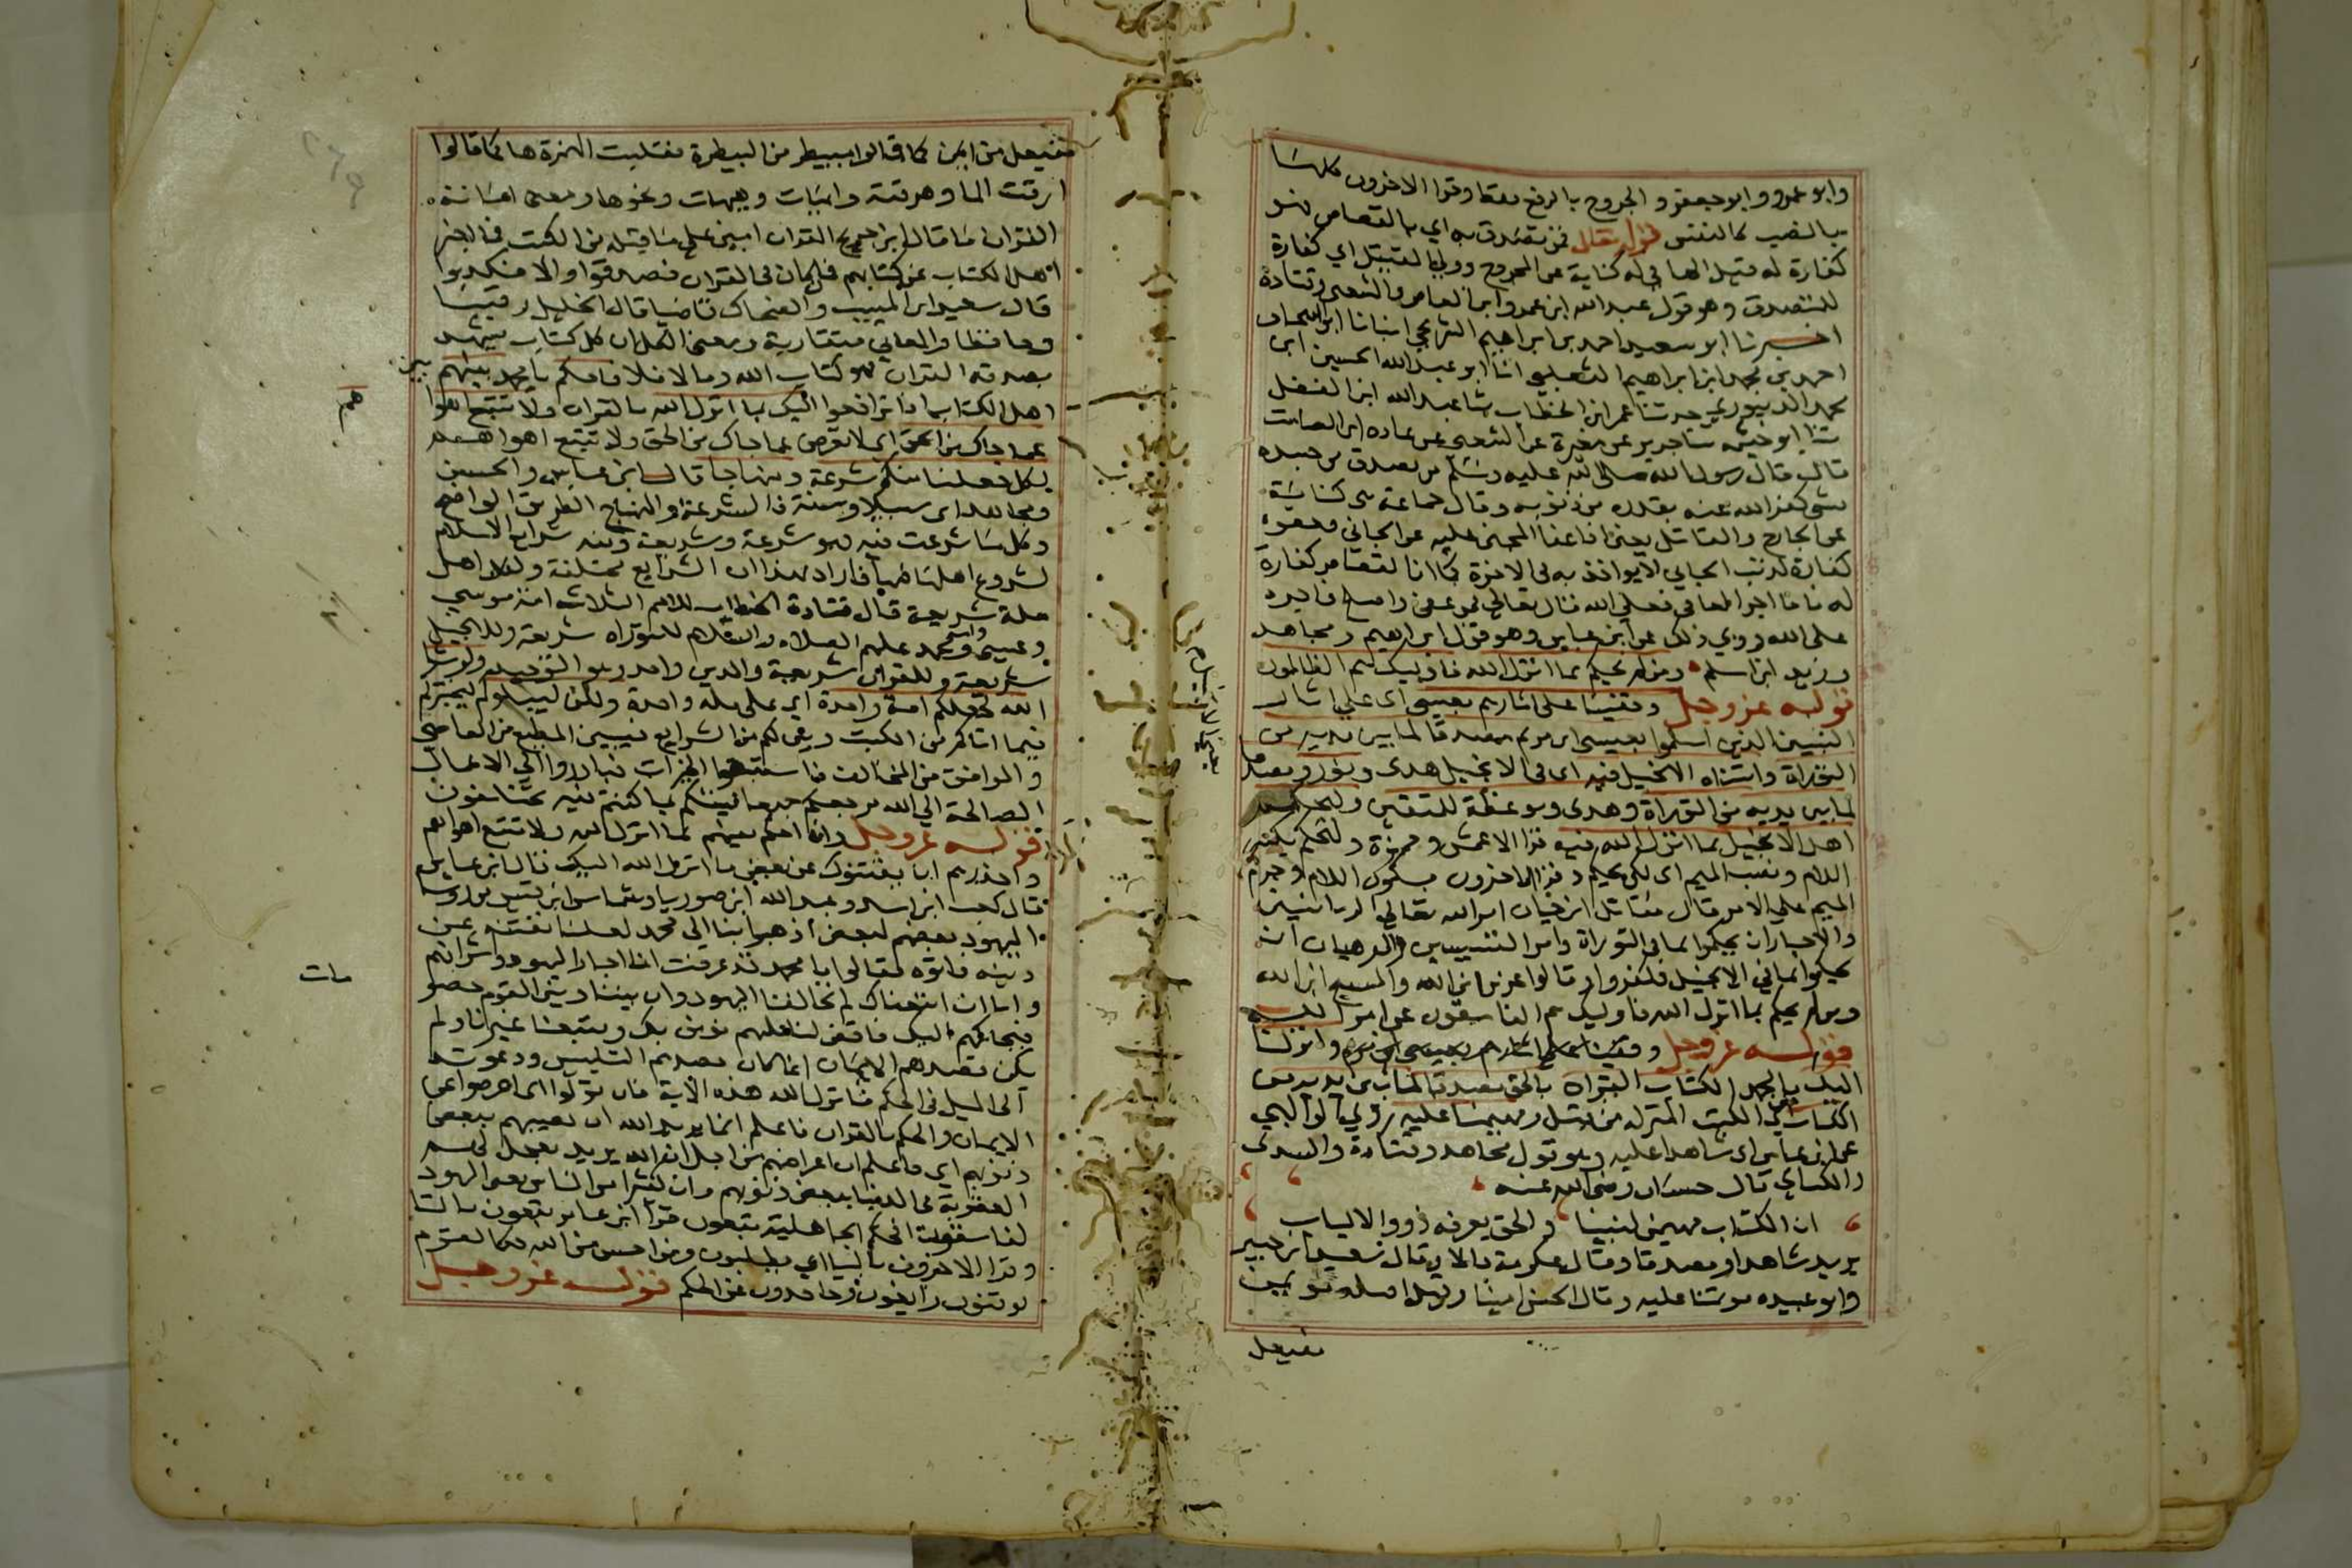 وابو عمرو وابو جعفر والجروح بالرفع فقط وقرا الاخرون كلها
بالنصب كالنفس قوله تعالى فمن تصدق به اي بالقصاص فهو
كفارة له قيل الها في له كناية عن المجروح وولي القتيل اي كفارة
للمتصدق وهو قول عبد الله ابن عمرو ابن العاص والشعبي وقتادة
اخبرنا ابو سعيد احمد بن ابراهيم الشريحي انبانا ابو اسحاق
احمد بن محمد ابن ابراهيم الثعلبي انا ابو عبد الله الحسين ابن
محمد الدينوري حدثنا عمر ابن الخطاب ثنا عبد الله ابن الفضل
ثنا ابو خيثمه ثنا جرير عن مغيرة عن الشعبي عن عباده ابن الصامت
قال قال رسول الله صلى الله عليه وسلم من تصدق من جسده
بشي كفر الله عنه بقدره من ذنوبه وقال جماعة هي كناية
عن الجارح والقاتل يعني اذا عفا المجني عليه عن الجاني فعفوه
كفارة لذنب الجاني لا يواخذ به في الاخرة كما ان القصاص كفارة
له فاما اجر العافي فعلي الله قال تعالى فمن عفى واصلح فاجره
على الله روي ذلك عن ابن عباس وهو قول ابراهيم ومجاهد
وزيد ابن اسلم ومن لم يحكم بما انزل الله فاوليك هم الظالمون
قوله عز وجل وقفينا على اثارهم بعيسى اى علي اثار
النبيين الذين اسلموا بعيسى ابن مريم مصدقا لما بين يديه من
التوراة واتيناه الانجيل فيه اى في الانجيل هدى ونور ومصدقا
لما بين يديه من التوراة وهدى وموعظة للمتقين وليحكم
اهل الانجيل بما انزل الله فيه قرا الاعمش وحمزة وليحكم بكسر
اللام ونصب الميم اى لكي يحكم وقرا الاخرون بسكون اللام وجزم
الميم على الامر قال مقاتل ابن حيان امر الله تعالى الربانيين
والاحبار ان يحكموا بما في التوراة وامر القسيسين والرهبان ان
يحكموا بما في الانجيل فكفروا وقالوا عزير ابن الله والمسيح ابن الله
ومن لم يحكم بما انزل الله فاوليك هم الفاسقون عن امر الله
قوله عز وجل وقفينا على اثارهم بعيسى ابن مريم وانزلنا
اليك يا محمد الكتاب القران بالحق مصدقا لما بين يديه من
الكتاب اي الكتب المنزله من قبل ومهيمنا عليه روي الوالبي
عن ابن عباس اى شاهدا عليه وهو قول مجاهد وقتادة والسدى
والكساي قال حسان رضي الله عنه
ان الكتاب مهيمن لنبينا والحق يعرفه ذووا الالباب
يريد شاهدا ومصدقا وقال عكرمة دالا وقال سعيد ابن جبير
وابو عبيده موتمنا عليه وقال الحسن امينا وقيل اصله مويمن
مفيعل
مفيعل من امن كما قالوا مبيطر من البيطرة فقلبت الهمزة ها كما قالوا
ارقت الما وهرقته وايهات وهيهات ونحوها ومعنى امانة
القران ما قال ابن جريج القران امين على ما قبله من الكتب فما اخبر
اهل الكتاب عن كتابهم فان كان في القران فصدقوا والا فكذبوا
قال سعيد ابن المسيب والضحاك قاضيا قال الخليل رقيبا
وحافظا والمعاني متقاربة ومعنى الكل ان كل كتاب يشهد
بصدقه القران فهو كتاب الله وما لا فلا فاحكم يا محمد بينهم بين
اهل الكتاب اذا ترافعوا اليك بما انزل الله بالقران ولا تتبع اهوا
عما جاك من الحق اى لا تعرض عما جاك من الحق ولا تتبع اهواهم
لكل جعلنا منكم شرعة ومنهاجا قال ابن عباس والحسن
ومجاهد اى سبيلا وسنة فالشرعة والمنهاج الطريق الواضح
وكل ما شرعت فيه فهو شرعة وشريعة ومنه شرايع الاسلام
لشروع اهلها فيها فاراد بهذا ان الشرايع مختلفة ولكل اهل
ملة شريعة قال قتادة الخطاب للامم الثلاث امة موسى
وعيسى وامة محمد عليهم الصلاه والسلام للتوراه شريعة وللانجيل
شريعة وللقران شريعة والدين واحد وهو التوحيد ولو شا
الله لجعلكم امة واحدة اي على ملة واحدة ولكن ليبلوكم ليختبركم
فيما اتاكم من الكتب وبين لكم من الشرايع فيبين المطيع من العاصي
والموافق من المخالف فاستبقوا الخيرات فبادروا الي الاعمال
الصالحة الي الله مرجعكم جميعا فينبئكم بما كنتم فيه تختلفون
قوله عز وجل وان احكم بينهم بما انزل الله ولا تتبع اهواهم
واحذرهم ان يفتنوك عن بعض ما انزل الله اليك قال ابن عباس
قال كعب ابن اسد وعبد الله ابن صوريا وشاس ابن قيس من روسا
اليهود بعضهم لبعض اذهبوا بنا الى محمد لعلنا نفتنه عن
دينه فاتوه فقالوا يا محمد قد عرفت انا احبار اليهود واشرافهم
وانا ان اتبعناك لم تخالفنا اليهود وان بيننا وبين القوم خصومة
فنحاكمهم اليك فاقض لنا عليهم نومن بك ويتبعنا غيرنا ولم
يكن قصدهم الايمان انما كان قصدهم التلبيس ودعوته
الى الميل في الحكم فانزل الله هذه الاية فان تولوا اى اعرضوا عن
الايمان والحكم بالقران فاعلم انما يريد الله ان يصيبهم ببعض
ذنوبهم اي فاعلم ان اعراضهم من اجل ان الله يريد يعجل لهم
العقوبة في الدنيا ببعض ذنوبهم وان كثيرا من الناس يعني اليهود
لفاسقون افحكم الجاهلية يبغون قرا ابن عامر تبغون بالتا
وقرا الاخرون باليا اي يطلبون ومن احسن من الله حكما لقوم
يوقنون عز الحكم قوله عز وجل
مات